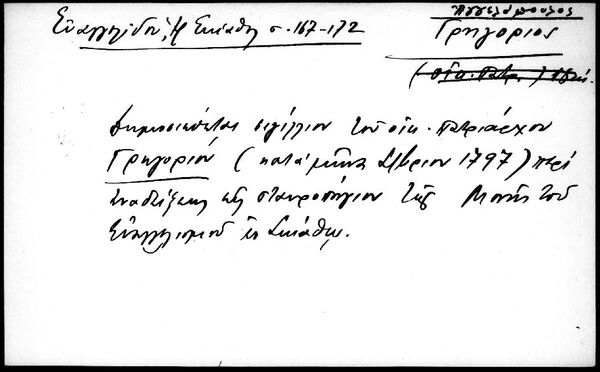 Ἀγγελόπουλος
Εὐαγγελίδου, Ἡ Σκίαθος σ. 167-172
Γρηγόριος
(οἰκ. Πατρ.)
Δημοσιεύεται σιγίλλιον τοῦ οἰκ. Πατριάρχου
Γρηγορίου (κατὰ μῆνα 1797) περὶ
ἀναδείξεως εἰς σταυροπήγιον τῆς Μονῆς τοῦ
Εὐαγγελισμοῦ ἐν Σκιάθῳ.